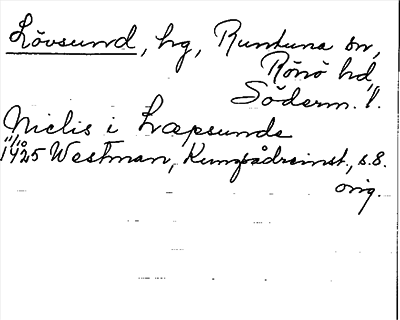 Lövsund, hg, Runtuna sn,
Rönö hd,
Söderm. l.
Niclis i Lœpsunde
1/10 1425 Westman, Kungsådreinst., s.8.
orig.